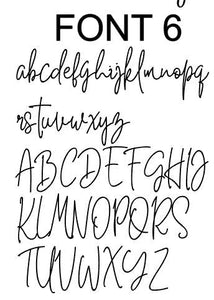 FONT 6
abcdefghijklmnopq
rstuvwxyz
ABCDEFGHIJ
KLMNOPQRS
TUVWXYZ